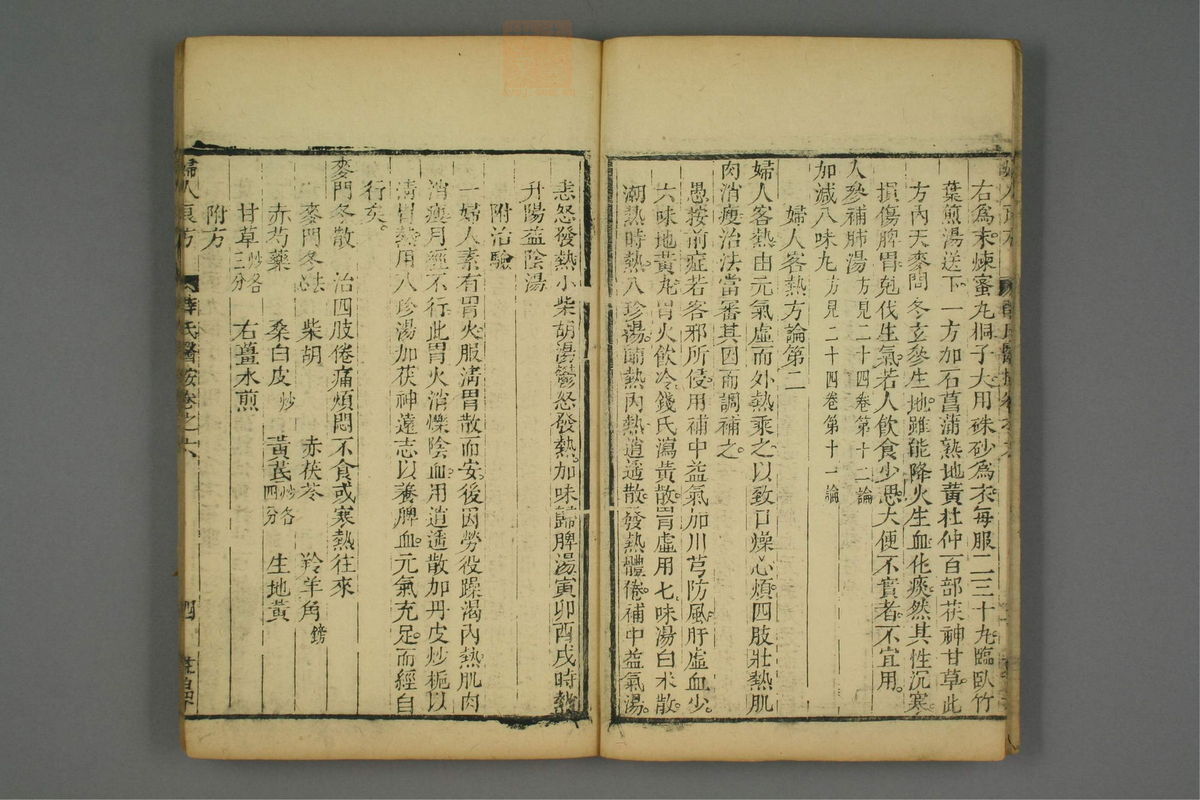 右為末煉蜜丸桐子大用硃砂為衣每服二三十丸臨臥竹
葉煎湯送下一方加石菖蒲熟地黃杜仲百部茯神甘草此
方內天麥門冬玄參生地雖能降火生血化痰然其性沉寒
損傷脾胃剋伐生氣若人飲食少思大便不實者不宜用
人參補肺湯方見二十四卷第十二論
加減八味丸方見二十四卷第十一論
婦人客熱方論第二
婦人客熱由元氣虛而外熱乘之以致口燥心煩四肢壯熱肌
肉消瘦治法當審其因而調補之
愚按前症若客邪所侵用補中益氣加川芎防風肝虛血少
六味地黃丸胃火飲冷錢氏瀉黃散胃虛用七味湯白朮散
潮熱時熱八珍湯晡熱內熱逍遙散發熱體倦補中益氣湯
恚怒發熱小柴胡湯鬱怒發熱加味歸脾湯寅卯酉戌時熱
升陽益陰湯
附治驗
一婦人素有胃火服清胃散而安後因勞役躁渴內熱肌肉
消瘦月經不行此胃火消爍陰血用逍遙散加丹皮炒梔以
清胃熱用八珍湯加茯神遠志以養脾血元氣充足而經自
行矣
麥門冬散 治四肢倦痛煩悶不食或寒熱往來
麥門冬去心 柴胡 赤茯苓 羚羊角鎊
赤芍藥 桑白皮炒 黃芪炒各四分 生地黃
甘草炒各三分 右薑水煎
附方
婦人良方 薛氏醫按卷之六 四